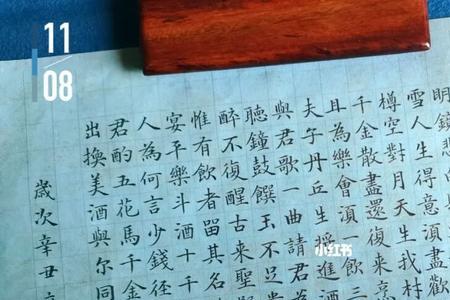 11
08
明
雪人生得意須盡歡
樽空對月天生我材
千金散盡還復來
且為樂會須一飲三
夫子丹丘生將進
與君歌一曲請君
聽鐘鼓饌玉不足
醉不復醒古來聖
惟有飲者留其名
宴平樂斗酒十千
人為何言少錢徑
君酌五花馬千金
出換美酒與爾同
歲次辛丑
小红书